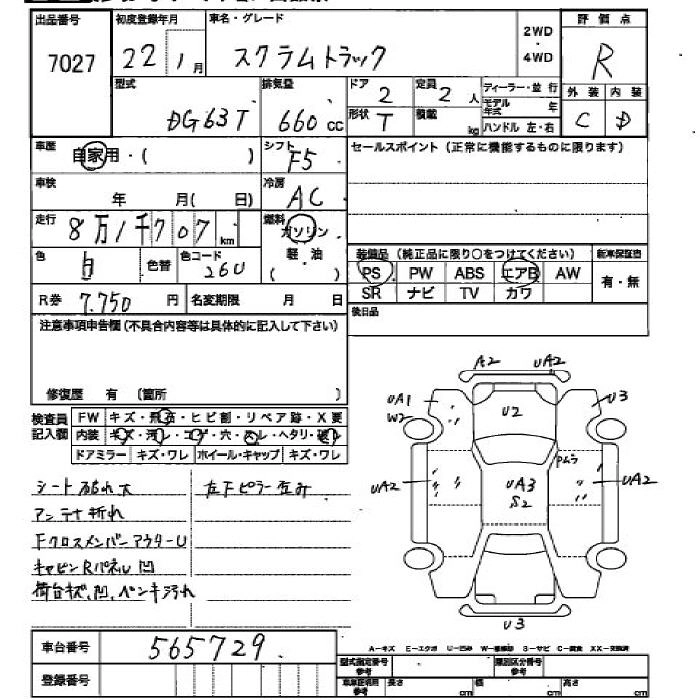 出品番号 初度登録年月 車名・グレード 2WD・4WD 評価点
7027 22年1月 スクラムトラック R
型式 排気量 ドア 定員 ディーラー・並行 外装 内装
DG63T 660cc 2 2人 モデル年式 年 C D
形状 T 積載 kg ハンドル 左・右
車歴 自家用・( ) シフト F5 セールスポイント(正常に機能するものに限ります)
車検 年 月( 日) 冷房 AC
走行 8万1千707km 燃料 ガソリン 軽・油 ( )
色 白 色替 色コード 26U
装備品(純正品に限り○をつけてください) 新車保証書
PS PW ABS エアB AW 有・無
SR ナビ TV カワ
R券 7.750円 名変期限 月 日 後日品
注意事項申告欄(不具合内容等は具体的に記入して下さい)
修復歴 有 (箇所 )
検査員記入欄 FW キズ・飛石・ヒビ割・リペア跡・X要
内装 キズ・汚レ・コゲ・穴・スレ・ヘタリ・破レ
ドアミラー キズ・ワレ ホイール・キャップ キズ・ワレ
シート破れ大 左Fピラー歪み
アンテナ折れ
FクロスメンバーアウターU
キャビンRパネル凹
荷台キズ、凹、ペンキ汚れ
A2 UA2
UA1 U2 U3
W2
UA2 UA3 S2 PムラUA2
U3
A-キズ E-エクボ U-凹み W-補修跡 S-サビ C-腐食 XX-交換済
車台番号 565729
登録番号
型式指定番号 参考 類別区分番号 参考
車庫証明用 参考 長さ cm 幅 cm 高さ cm